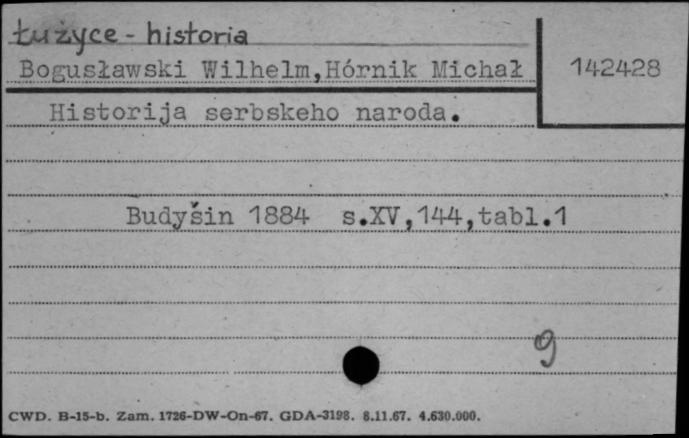 Łużyce - historia
Bogusławski Wilhelm,Hórnik Michał
142428
Historija serbskeho naroda.
Budyšin 1884 s.XV,144,tabl.1
9
CWD. B-15-b. Zam. 1726-DW-On-67. GDA-3198. 8.11.67. 4.630.000.